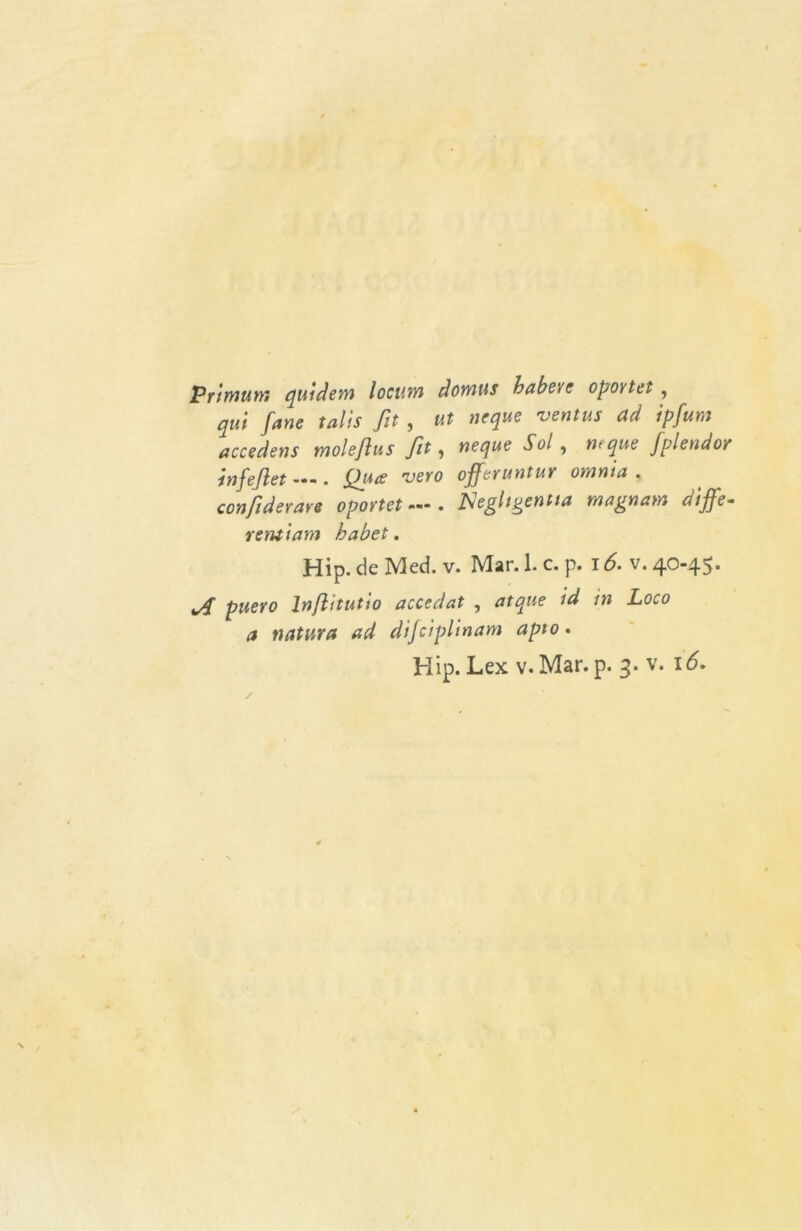 Primum quidem locum domus habere oportet,
qui ſane talis ſit, ut neque ventus ad ipſum
accedens moleſtus ſit, neque Sol, neque ſplendor
infeſtet ---. Quæ vero offeruntur omnia.
conſiderare oportet ---. Negligentia magnam diffe-
rentiam habet.
Hip. de Med. v. Mar. l. c. p. 16. v. 40-45.
A puero Inſtitutio accedat, atque id in Loco
a natura ad diſciplinam apto.
Hip. Lex v. Mar. p. 3. v. 16.